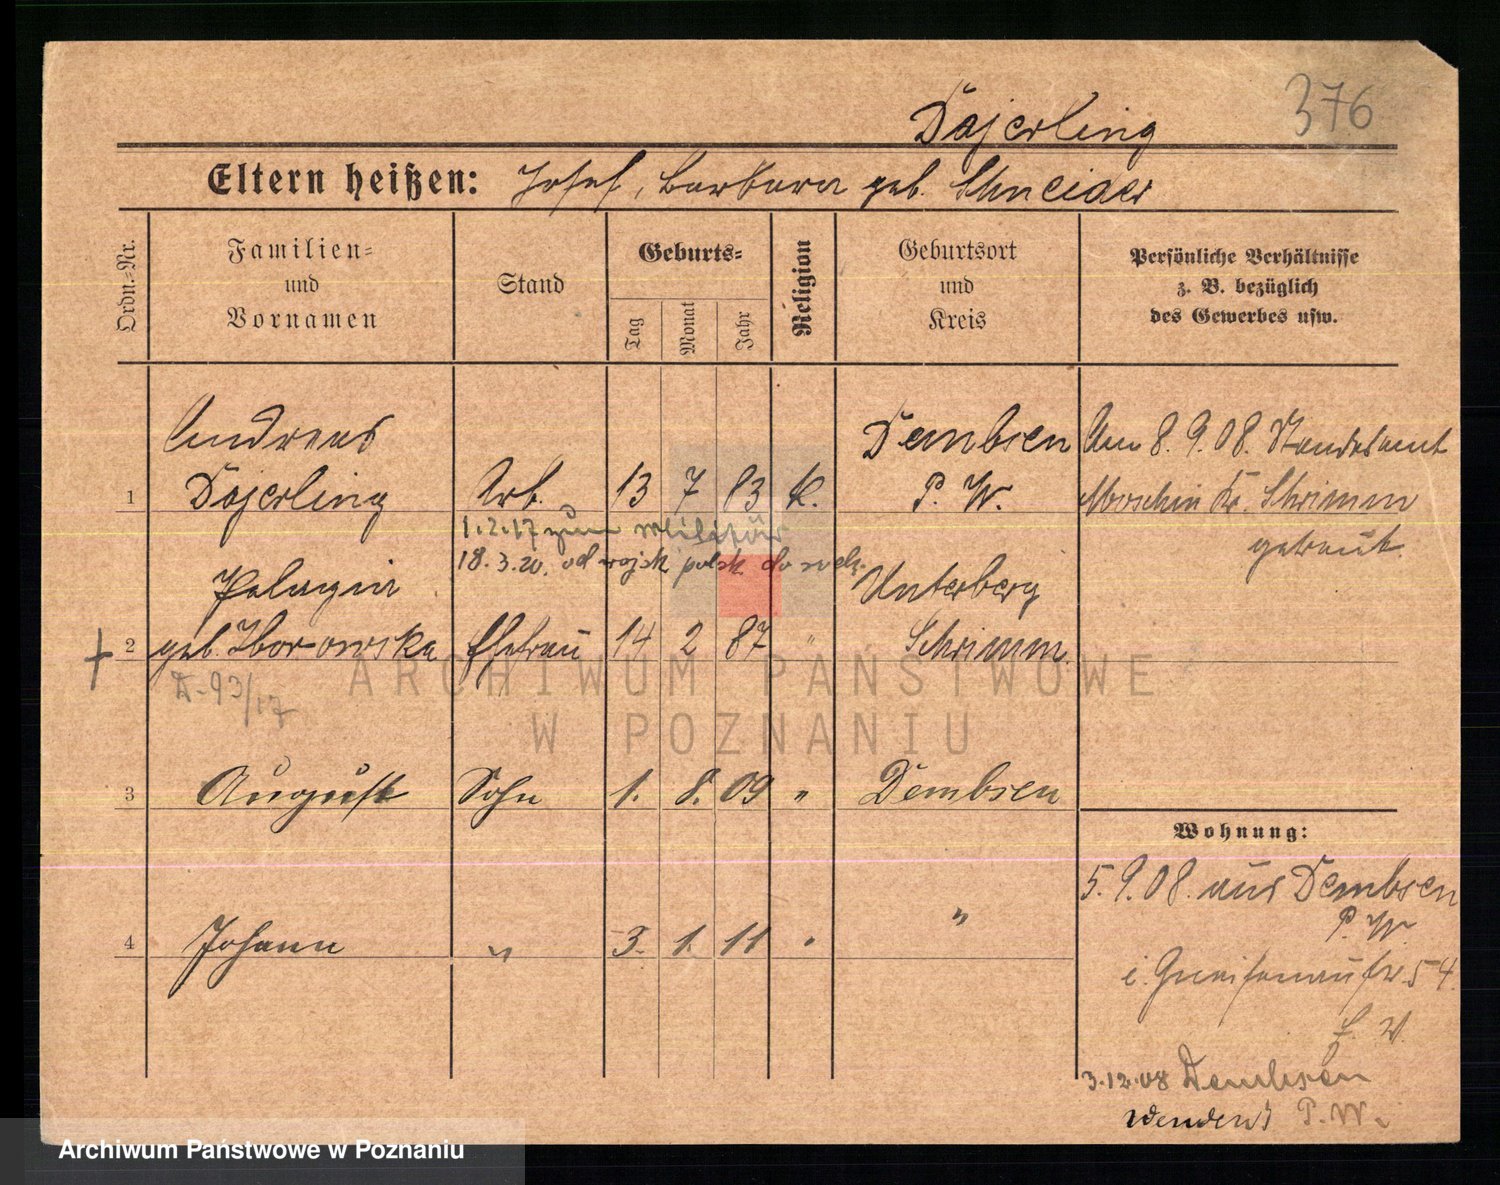 376
Dajerling
Eltern heißen: Josef, Barbara geb. Schneider
Ordn.=Nr.
Familien= und Vornamen
Stand
Geburts=
Tag
Monat
Jahr
Religion
Geburtsort und Kreis
Persönliche Verhältnisse z. B. bezüglich des Gewerbes usw.
Andreas Dembsen Am 8.9.08. Standesamt
1 Dajerling Arb. 13 7 83 K. P. W. Moschin Kr. Schrimm
getraut.
1.2.17 zum Militär
18.3.20. od wojsk polsk do
Pelagia Unterberg
2 geb. Zborowska Ehefrau 14 2 87 " Schrimm.
D-93/17
3 August Sohn 1. 8. 09 " Dembsen
Wohnung:
5.9.08. aus Dembsen
P. W.
4 Johann " 3. 1. 11 " "
i. 54.
3.12.08 Dembsen
P. W.
wenden!
ARCHIWUM PAŃSTWOWE
W POZNANIU
Archiwum Państwowe w Poznaniu